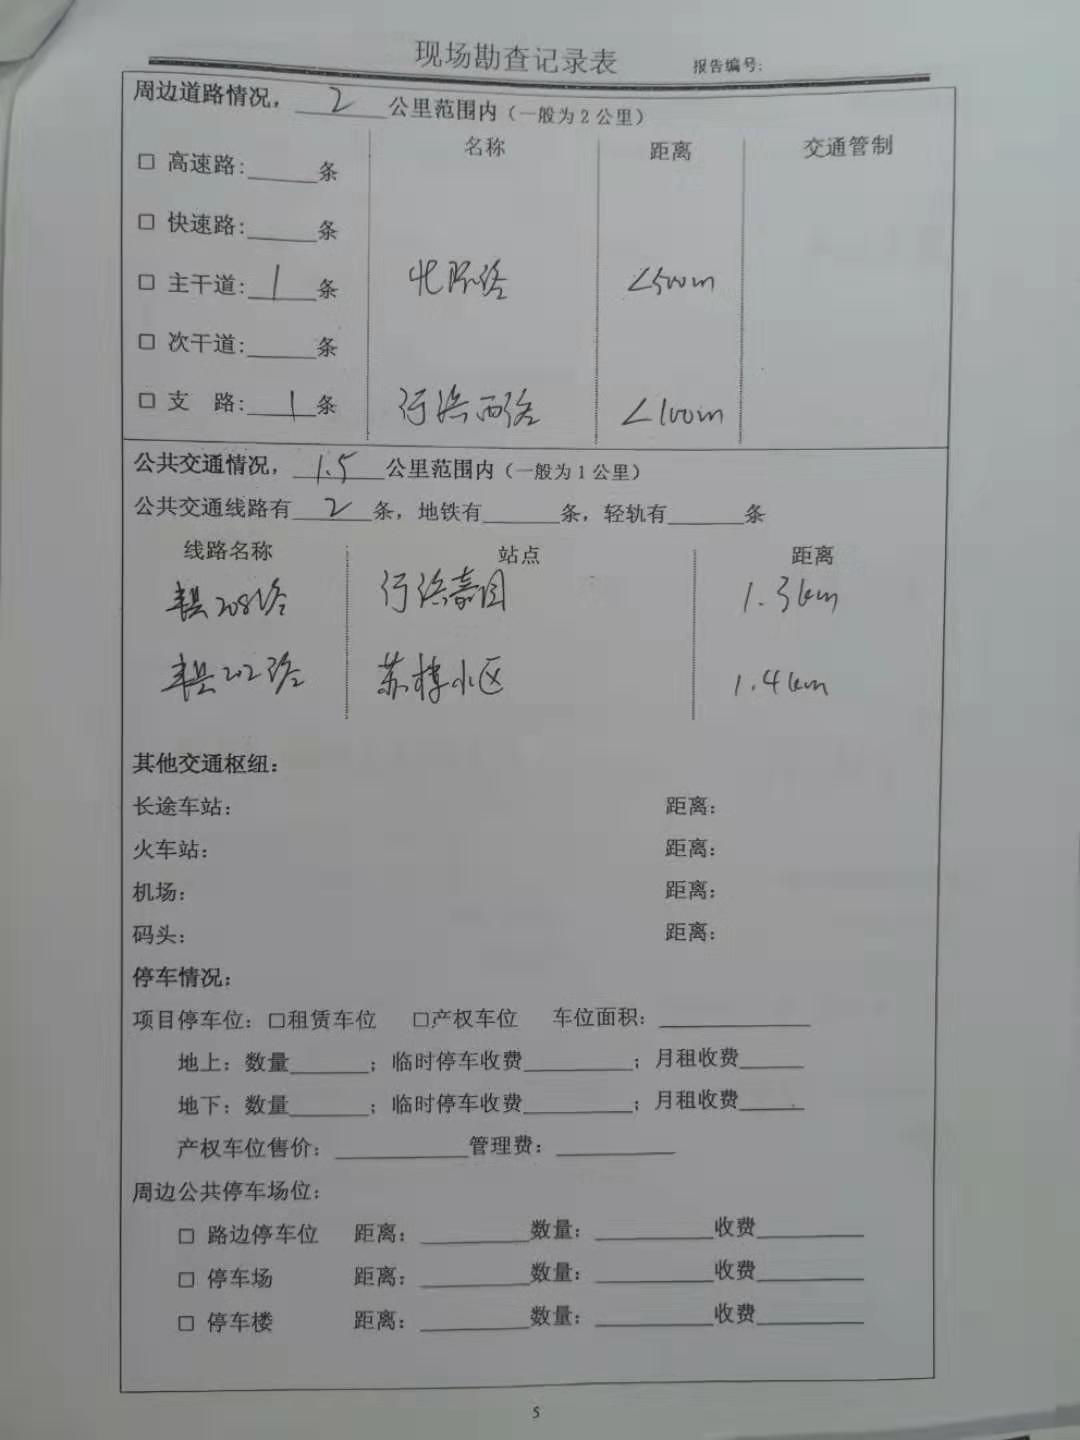 现场勘查记录表 报告编号:
周边道路情况, 2 公里范围内(一般为2公里)
名称 距离 交通管制
□ 高速路:______条
□ 快速路:______条
□ 主干道: 1 条 北环路 <500m
□ 次干道:______条
□ 支 路: 1 条 行滨西路 <100m
公共交通情况, 1.5 公里范围内(一般为1公里)
公共交通线路有 2 条,地铁有______条,轻轨有______条
线路名称 站点 距离
丰县208路 行滨嘉园 1.3km
丰县202路 苏楼小区 1.4km
其他交通枢纽:
长途车站: 距离:
火车站: 距离:
机场: 距离:
码头: 距离:
停车情况:
项目停车位:□租赁车位 □产权车位 车位面积:____________
地上:数量______;临时停车收费________;月租收费_____
地下:数量______;临时停车收费________;月租收费_____
产权车位售价:__________管理费:_________
周边公共停车场位:
□ 路边停车位 距离:________数量:_________收费________
□ 停车场 距离:________数量:_________收费________
□ 停车楼 距离:________数量:_________收费________
5